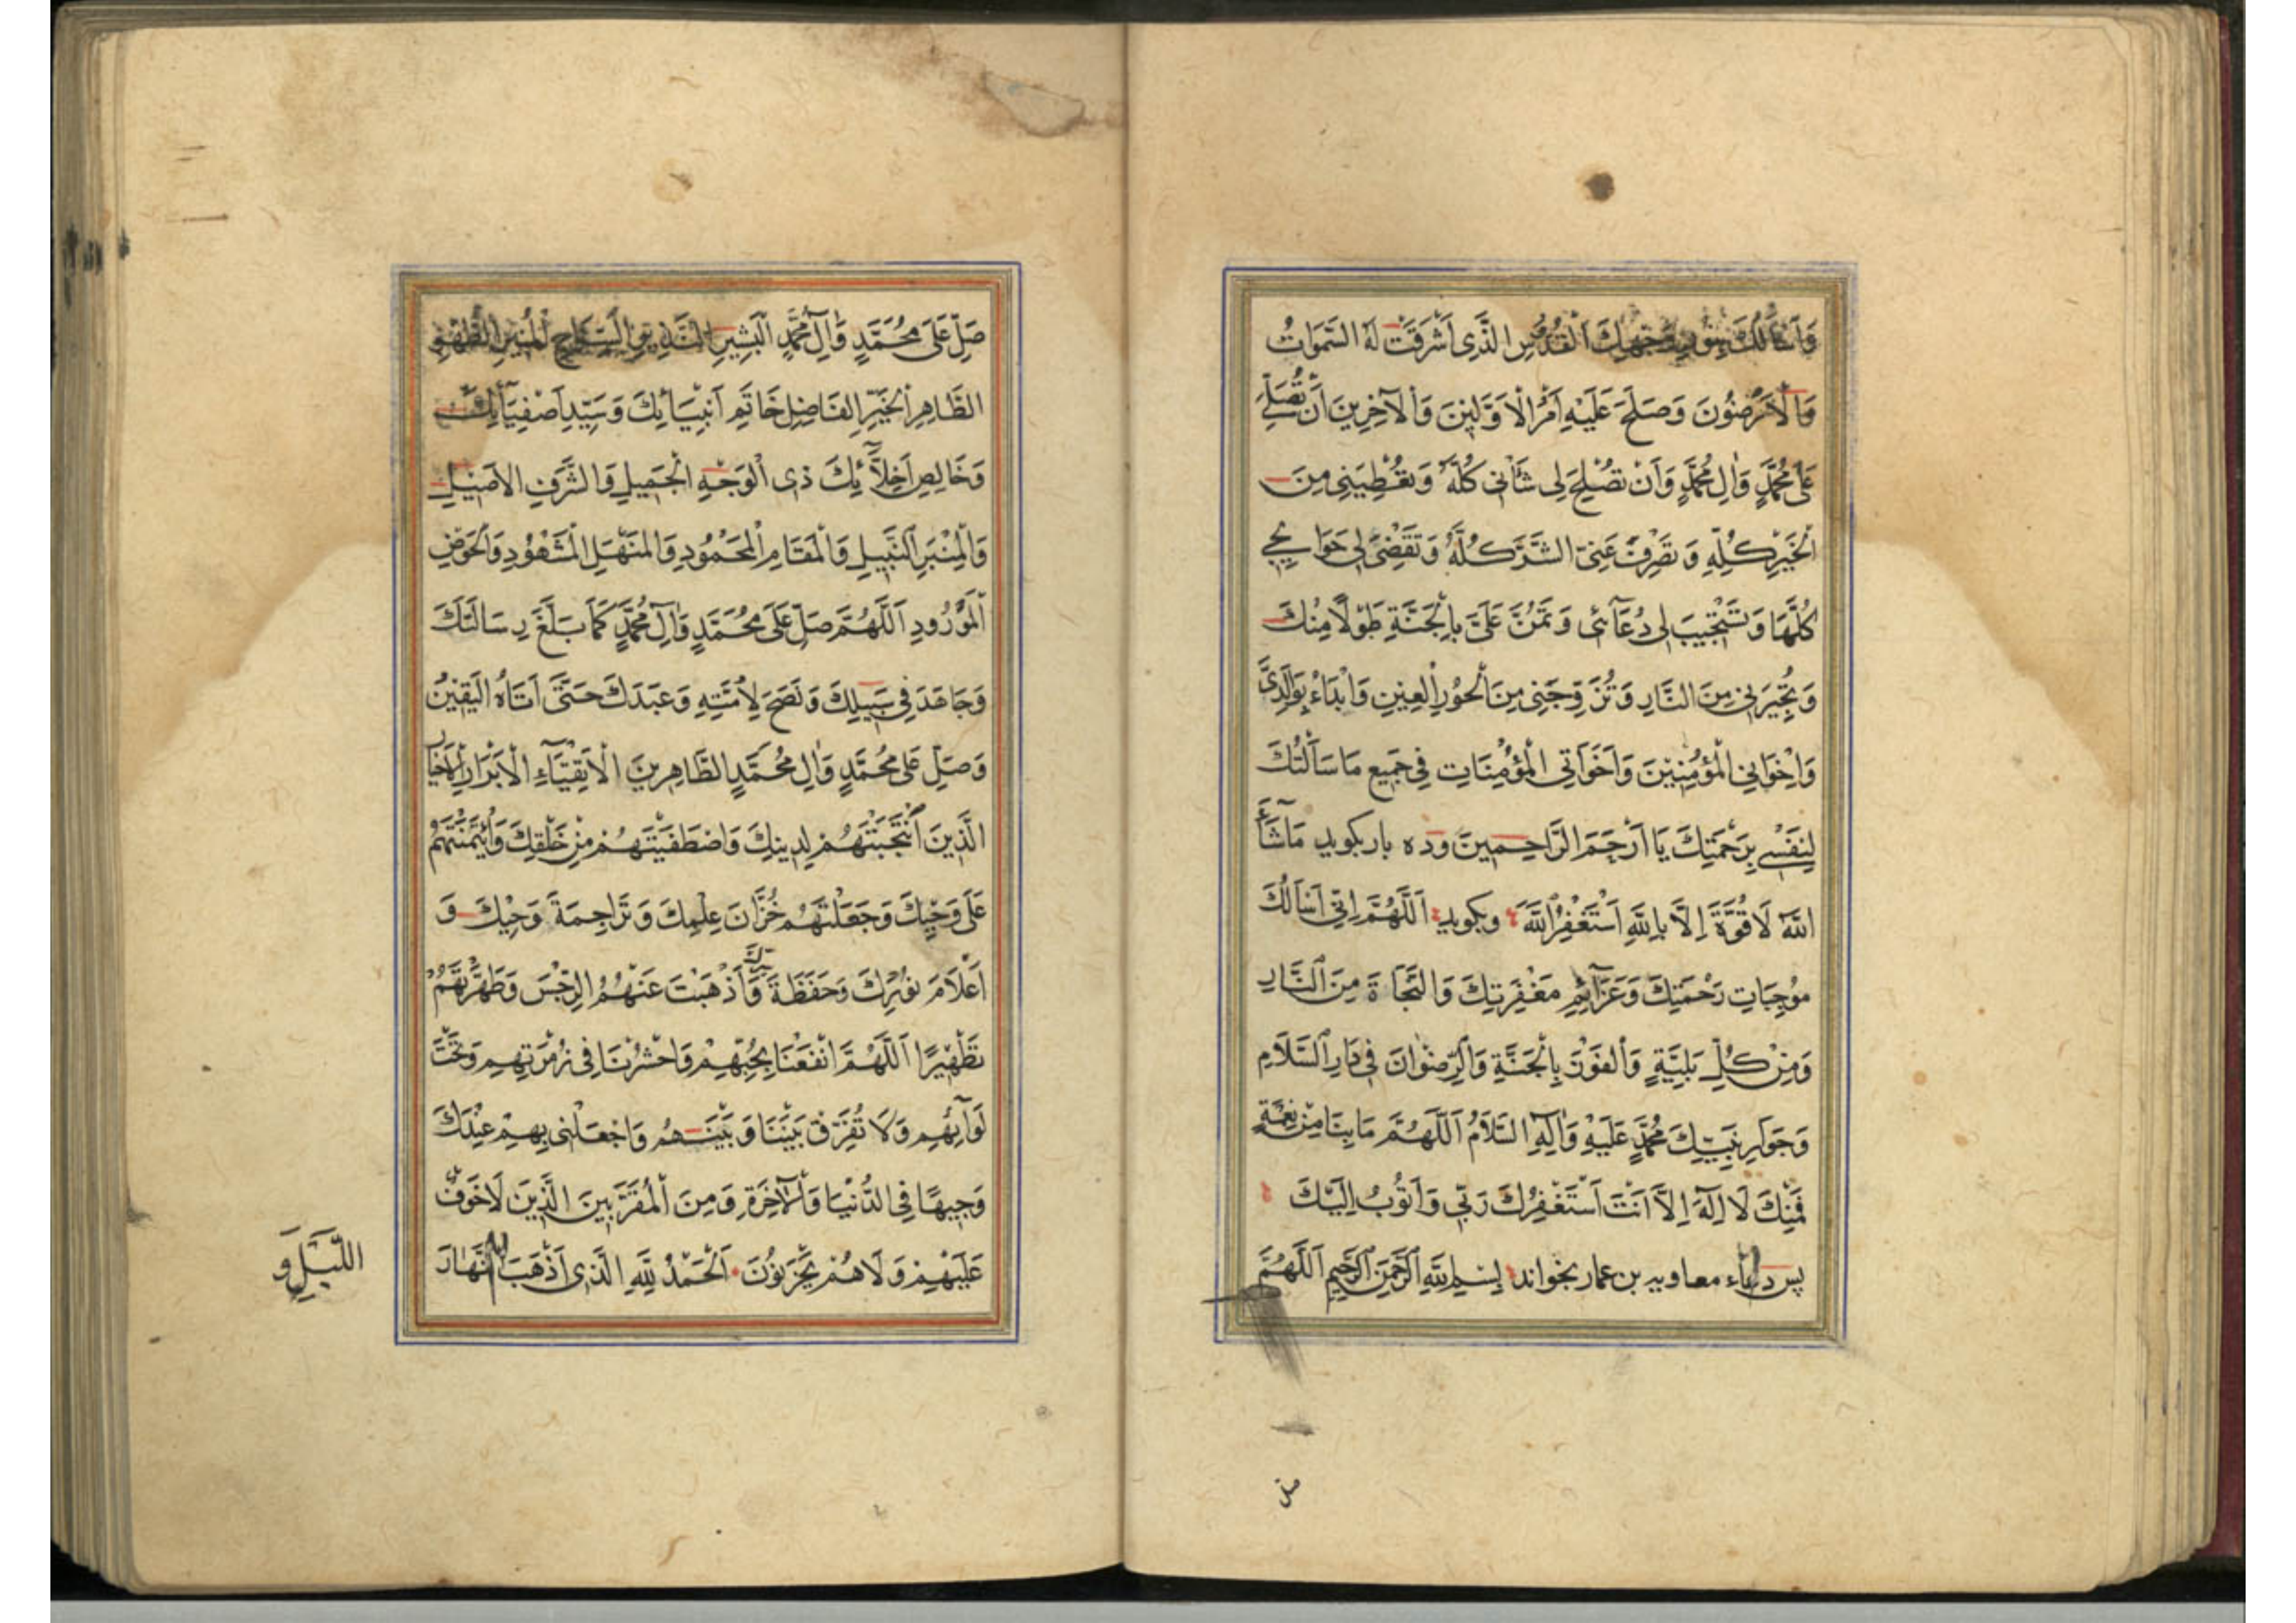 وَاَسْأَلُكَ بِنُورِ وَجْهِكَ الْقُدُّوسِ الَّذِى اَشْرَقَتْ لَهُ السَّمَوَاتُ
وَالْاَرَضُونَ وَصَلَحَ عَلَيْهِ اَمْرُ الْاَوَّلِينَ وَالْاٰخِرِينَ اَنْ تُصَلِّىَ
عَلٰى مُحَمَّدٍ وَاٰلِ مُحَمَّدٍ وَاَنْ تُصْلِحَ لِى شَأْنِى كُلَّهُ وَتُعْطِيَنِى مِنَ
الْخَيْرِ كُلِّهِ وَتَصْرِفَ عَنِّىَ الشَّرَّ كُلَّهُ وَتَقْضِىَ لِى حَوَائِجِى
كُلَّهَا وَتَسْتَجِيبَ لِى دُعَآئِى وَتَمُنَّ عَلَىَّ بِالْجَنَّةِ طَوْلًا مِنْكَ
وَتُجِيْرَنِى مِنَ النَّارِ وَتُزَوِّجَنِى مِنَ الْحُوْرِ الْعِيْنِ وَابْدَاءُ بِوَالِدَىَّ
وَاِخْوَانِى الْمُؤْمِنِيْنَ وَاَخَوَاتِى الْمُؤْمِنَاتِ فِى جَمِيعِ مَا سَأَلْتُكَ
لِنَفْسِى بِرَحْمَتِكَ يَا اَرْحَمَ الرَّاحِمِينَ وده بار بكويد مَا شَآءَ
اللّٰهُ لَا قُوَّةَ اِلَّا بِاللّٰهِ اَسْتَغْفِرُ اللّٰهَ وبكويد اَللّٰهُمَّ اِنِّى اَسْاَلُكَ
مُوْجِبَاتِ رَحْمَتِكَ وَعَزَآئِمِ مَغْفِرَتِكَ وَالنَّجَاةَ مِنَ النَّارِ
وَمِنْ كُلِّ بَلِيَّةٍ وَالْفَوْزَ بِالْجَنَّةِ وَالرِّضْوَانَ فِى دَارِ السَّلَامِ
وَجَوَارِ نَبِيِّكَ مُحَمَّدٍ عَلَيْهِ وَاٰلِهِ السَّلَامُ اَللّٰهُمَّ مَا بِنَا مِنْ نِعْمَةٍ
فَمِنْكَ لَا اِلٰهَ اِلَّا اَنْتَ اَسْتَغْفِرُكَ رَبِّى وَاَتُوبُ اِلَيْكَ
پس دعاء معاويه بن عمار بخواند بِسْمِ اللّٰهِ الرَّحْمٰنِ الرَّحِيْمِ اَللّٰهُمَّ
صل
صَلِّ عَلَى مُحَمَّدٍ وَاٰلِ مُحَمَّدٍ الْبَشِيْرِ النَّذِيرِ السِّرَاجِ الْمُنِيْرِ الطُّهْرِ
الطَّاهِرِ الْخَيِّرِ الفَاضِلِ خَاتَمِ اَنْبِيَائِكَ وَسَيِّدِ اَصْفِيَآئِكَ
وَخَالِصِ اَخِلَّآئِكَ ذِى الْوَجْهِ الْجَمِيلِ وَالشَّرَفِ الْاَصِيْلِ
وَالْمِنْبَرِ النَّبِيلِ وَالْمَقَامِ الْمَحْمُودِ وَالْمَنْهَلِ الْمَشْهُوْدِ وَالْحَوْضِ
الْمَوْرُودِ اَللّٰهُمَّ صَلِّ عَلَى مُحَمَّدٍ وَاٰلِ مُحَمَّدٍ كَمَا بَلَّغَ رِسَالَتَكَ
وَجَاهَدَ فِى سَبِيلِكَ وَنَصَحَ لِاُمَّتِهِ وَعَبَدَكَ حَتّٰى اَتَاهُ الْيَقِيْنُ
وَصَلِّ عَلٰى مُحَمَّدٍ وَاٰلِ مُحَمَّدٍ الطَّاهِرِينَ الْاَتْقِيَآءِ الْاَبْرَارِ الْاَخْيَارِ
الَّذِينَ انْتَجَبْتَهُمْ لِدِينِكَ وَاصْطَفَيْتَهُمْ مِنْ خَلْقِكَ وَائْتَمَنْتَهُمْ
عَلَى وَحْيِكَ وَجَعَلْتَهُمْ خُزَّانَ عِلْمِكَ وَتَرَاجِمَةَ وَحْيِكَ وَ
اَعْلَامَ نُوْرِكَ وَحَفَظَةَ سِرِّكَ وَاَذْهَبْتَ عَنْهُمُ الرِّجْسَ وَطَهَّرْتَهُمْ
تَطْهِيْرًا اَللّٰهُمَّ انْفَعْنَا بِحُبِّهِمْ وَاحْشُرْنَا فِى زُمْرَتِهِمْ وَتَحْتَ
لَوَآئِهِمْ وَلَا تُفَرِّقْ بَيْنَنَا وَبَيْنَهُمْ وَاجْعَلْنِى بِهِمْ عِنْدَكَ
وَجِيهًا فِى الدُّنْيَا وَالْاٰخِرَةِ وَمِنَ الْمُقَرَّبِينَ الَّذِينَ لَاخَوْفٌ
عَلَيْهِمْ وَلَاهُمْ يَحْزَنُوْنَ اَلْحَمْدُ لِلّٰهِ الَّذِى اَذْهَبَ النَّهَارَ
اللَّيْلِ وَ